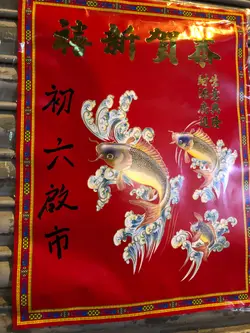 恭賀新禧
初六啟市